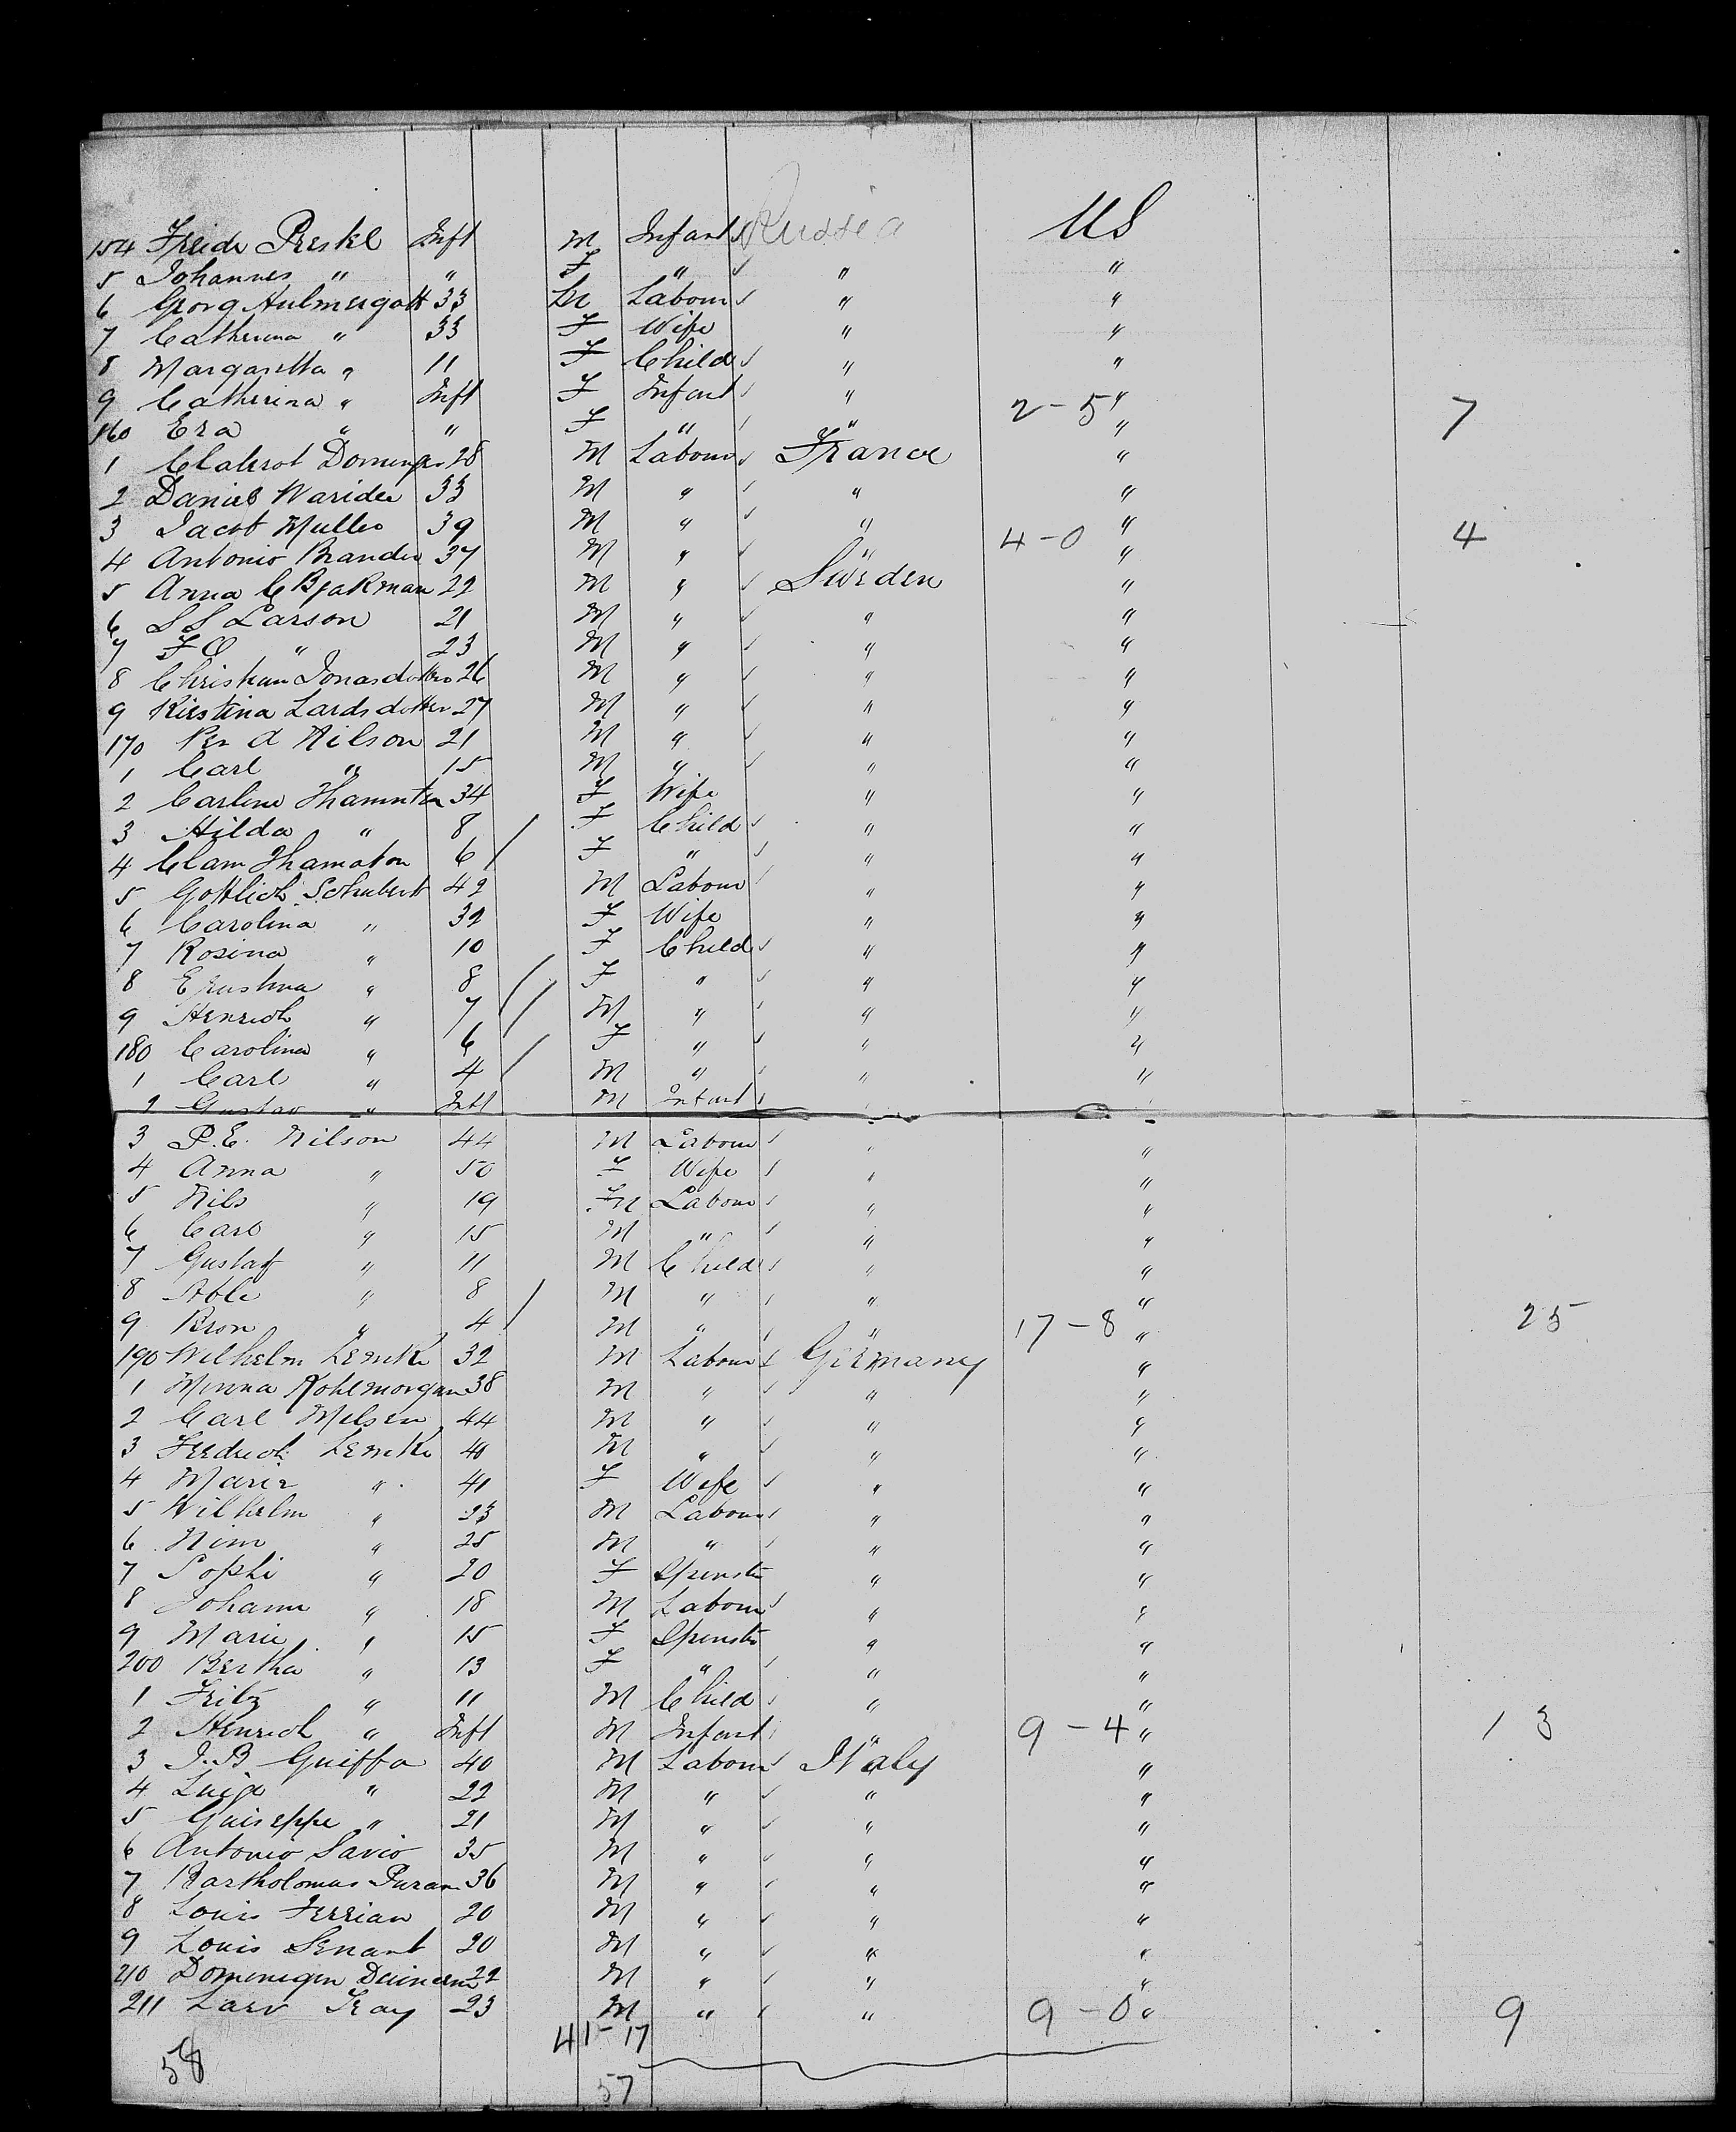 Russia US
154 Freide Preskel Inft M Infant
5 Johannes " " F " " "
6 Georg Aulmergott 33 M Labour " "
7 Catherina " 33 F Wife " "
8 Margaretta " 11 F Child " "
9 Catherina " Inft F Infant " 2-5 " 7
160 Eva " " F " " "
1 Domenger 28 M Labour France "
2 Daniel Waridel 33 M " " "
3 Jacob Muller 39 M " " 4-0 " 4
4 Antonio Brander 37 M " " "
5 Anna C Bjakman 22 M " Sweden "
6 S S Larson 21 M " " "
7 F O " 23 M " " "
8 Christian Jonasdotter 26 M " " "
9 Kirstina Lardsdotter 27 M " " "
170 Per A Nilson 21 M " " "
1 Carl " 15 M " " "
2 Carline 34 F Wife " "
3 Hilda " 8 / F Child " "
4 Clam Thamaton 6 / F " " "
5 Gottlich Schubert 42 M Labour " "
6 Carolina " 32 F Wife " "
7 Rosina " 10 F Child " "
8 " 8 / F " " "
9 Henrich " 7 / M " " "
180 Carolina " 6 F " " "
1 Carl " 4 / M " " "
2 Gustav " Inft M Infant
3 P.E. Nilson 44 M Labour " "
4 Anna " 50 F Wife " "
5 Nils " 19 M Labour " "
6 Carl " 15 M " " "
7 Gustaf " 11 M Child " "
8 Able " 8 / M " " "
9 Bron " 4 / M " " 17-8 " 25
190 Wilhelm Lemke 32 M Labour Germany "
1 Minna Kohlmorgan 38 M " " "
2 Carl Melsen 44 M " " "
3 Fredrich Lemke 40 M " " "
4 Marie " 41 F Wife " "
5 Wilhelm " 23 M Labour " "
6 " 25 M " " "
7 Sophi " 20 F Spinster " "
8 Johann " 18 M Labour " "
9 Marie " 15 F Spinster " "
200 Bertha " 13 F " " "
1 Fritz " 11 M Child " "
2 Henrich " Inft M Infant " 9-4 " 13
3 J.B. Guiffa 40 M Labour Italy "
4 Luiga " 22 M " " "
5 Guiseppe " 21 M " " "
6 Antonio Savio 35 M " " "
7 Bartholomas Puram 36 M " " "
8 Louis Ferrian 20 M " " "
9 Louis Senant 20 M " " "
210 Domenigen 22 M " " "
211 Lars Tray 23 M " " 9-0 " 9
41-17
58
57